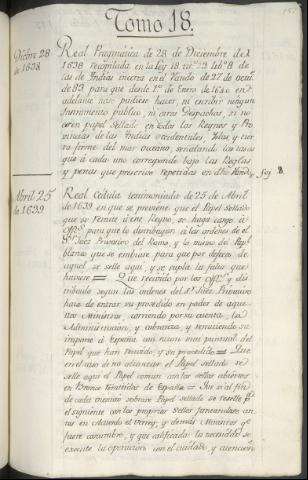 Tomo 18.
Dictre. 28 de 1638
Real Pragmatica de 28 de Diciembre de
1638 recopilada en la Ley 18. titº 23 Libº 8 de
las de Indias incerta en el Vando de 27 de octure.
de 83 para que desde 1º de Enero de 1640 en
adelante no se pudiese hacer, ni escribir ningun
Instrumento publico, ni otros Despachos, si no
en papel Sellado en todos los Reynos y Pro-
vincias de las Indias occidentales, Yslas y tier-
ra firme del mar oceano, señalando las tasas
que á cada uno corresponde bajo las Reglas
y penas que prescrive repetidas en dho Vando, y foj. 8.
Abril 25 de 1639
Real Cedula testimoniada de 25 de Abril
de 1639 en que se previene que el Papel Sellado
que se remita á este Reyno, se haga cargo á
para que lo distribuyan á las ordenes del
Sr. Juez Privativo del Ramo, y lo mismo del Papel
blanco que se embiase para que por defecto de
aquel se selle aqui y se supla las faltas que
huviese = Que recivido por los y dis-
tribuido segun las ordenes del Sr. Juez Privativo
haia de entrar su procedido en poder de aque-
llos Ministros, corriendo por su cuenta, la
Administracion, y cobranza, y remitiendo su
importe á España con razon mui puntual del
Papel que han recivido, y su procedido = Que
en el caso de no alcanzar el Papel sellado se
selle aqui el Papel comun con los sellos abiertos
en Bronce remitidos de España = Que si al fin
de cada vienio sobrare Papel sellado se reselle pa.
el siguiente con los proprios Sellos
en Acuerdo el Virrey, y demás Ministros qe.
fuere costumbre, y que calificada la necesidad se
execute la operacion con el cuidado, y